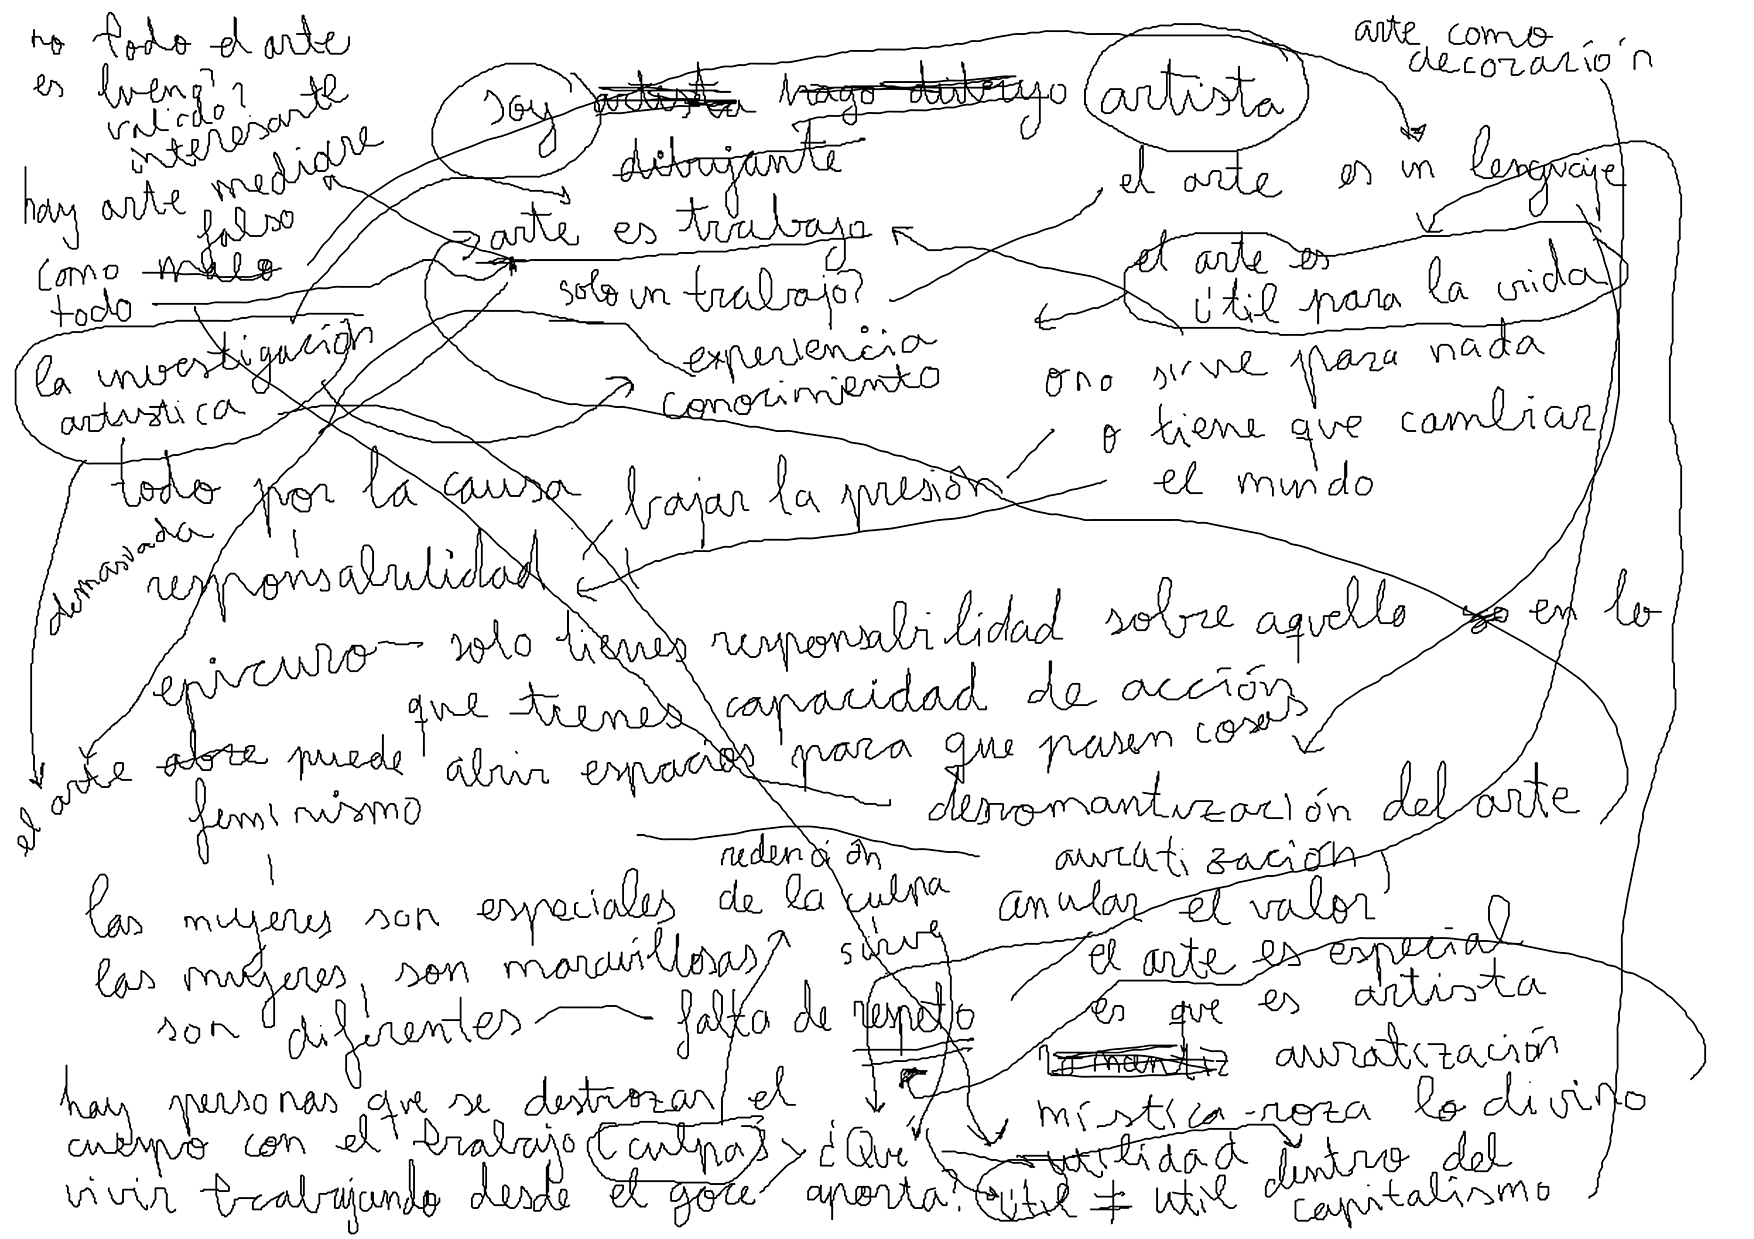 no todo el arte
es bueno?
valido?
interesante
hay arte mediocre
falso
como malo
todo
soy artista hago dibujo artista
dibujante
arte como
decoración
el arte es un lenguaje
arte es trabajo
solo un trabajo?
el arte es
útil para la vida
la investigación
artística
experiencia
conocimiento
o no sirve para nada
o tiene que cambiar
el mundo
todo por la causa
bajar la presión
demasiada
responsabilidad
epicuro — solo tienes responsabilidad sobre aquello en lo
que tienes capacidad de acción
el arte abre puede abrir espacios para que pasen cosas
feminismo
desromantización del arte
auratización
anular el valor
redención
de la culpa
las mujeres son especiales
las mujeres son maravillosas
son diferentes — falta de respeto
sirve
el arte es especial
es que es artista
romantiz auratización
mística - roza lo divino
hay personas que se destrozan el
cuerpo con el trabajo (culpa)
vivir trabajando desde el goce
¿Qué
aporta?
utilidad
útil ≠ util dentro del
capitalismo